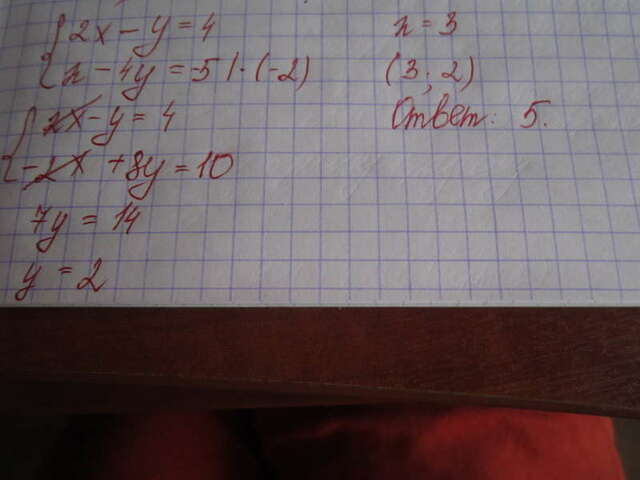 2x - y = 4
x - 4y = -5 | · (-2)
2x - y = 4
-2x + 8y = 10
7y = 14
y = 2
x = 3
(3; 2)
Ответ: 5.